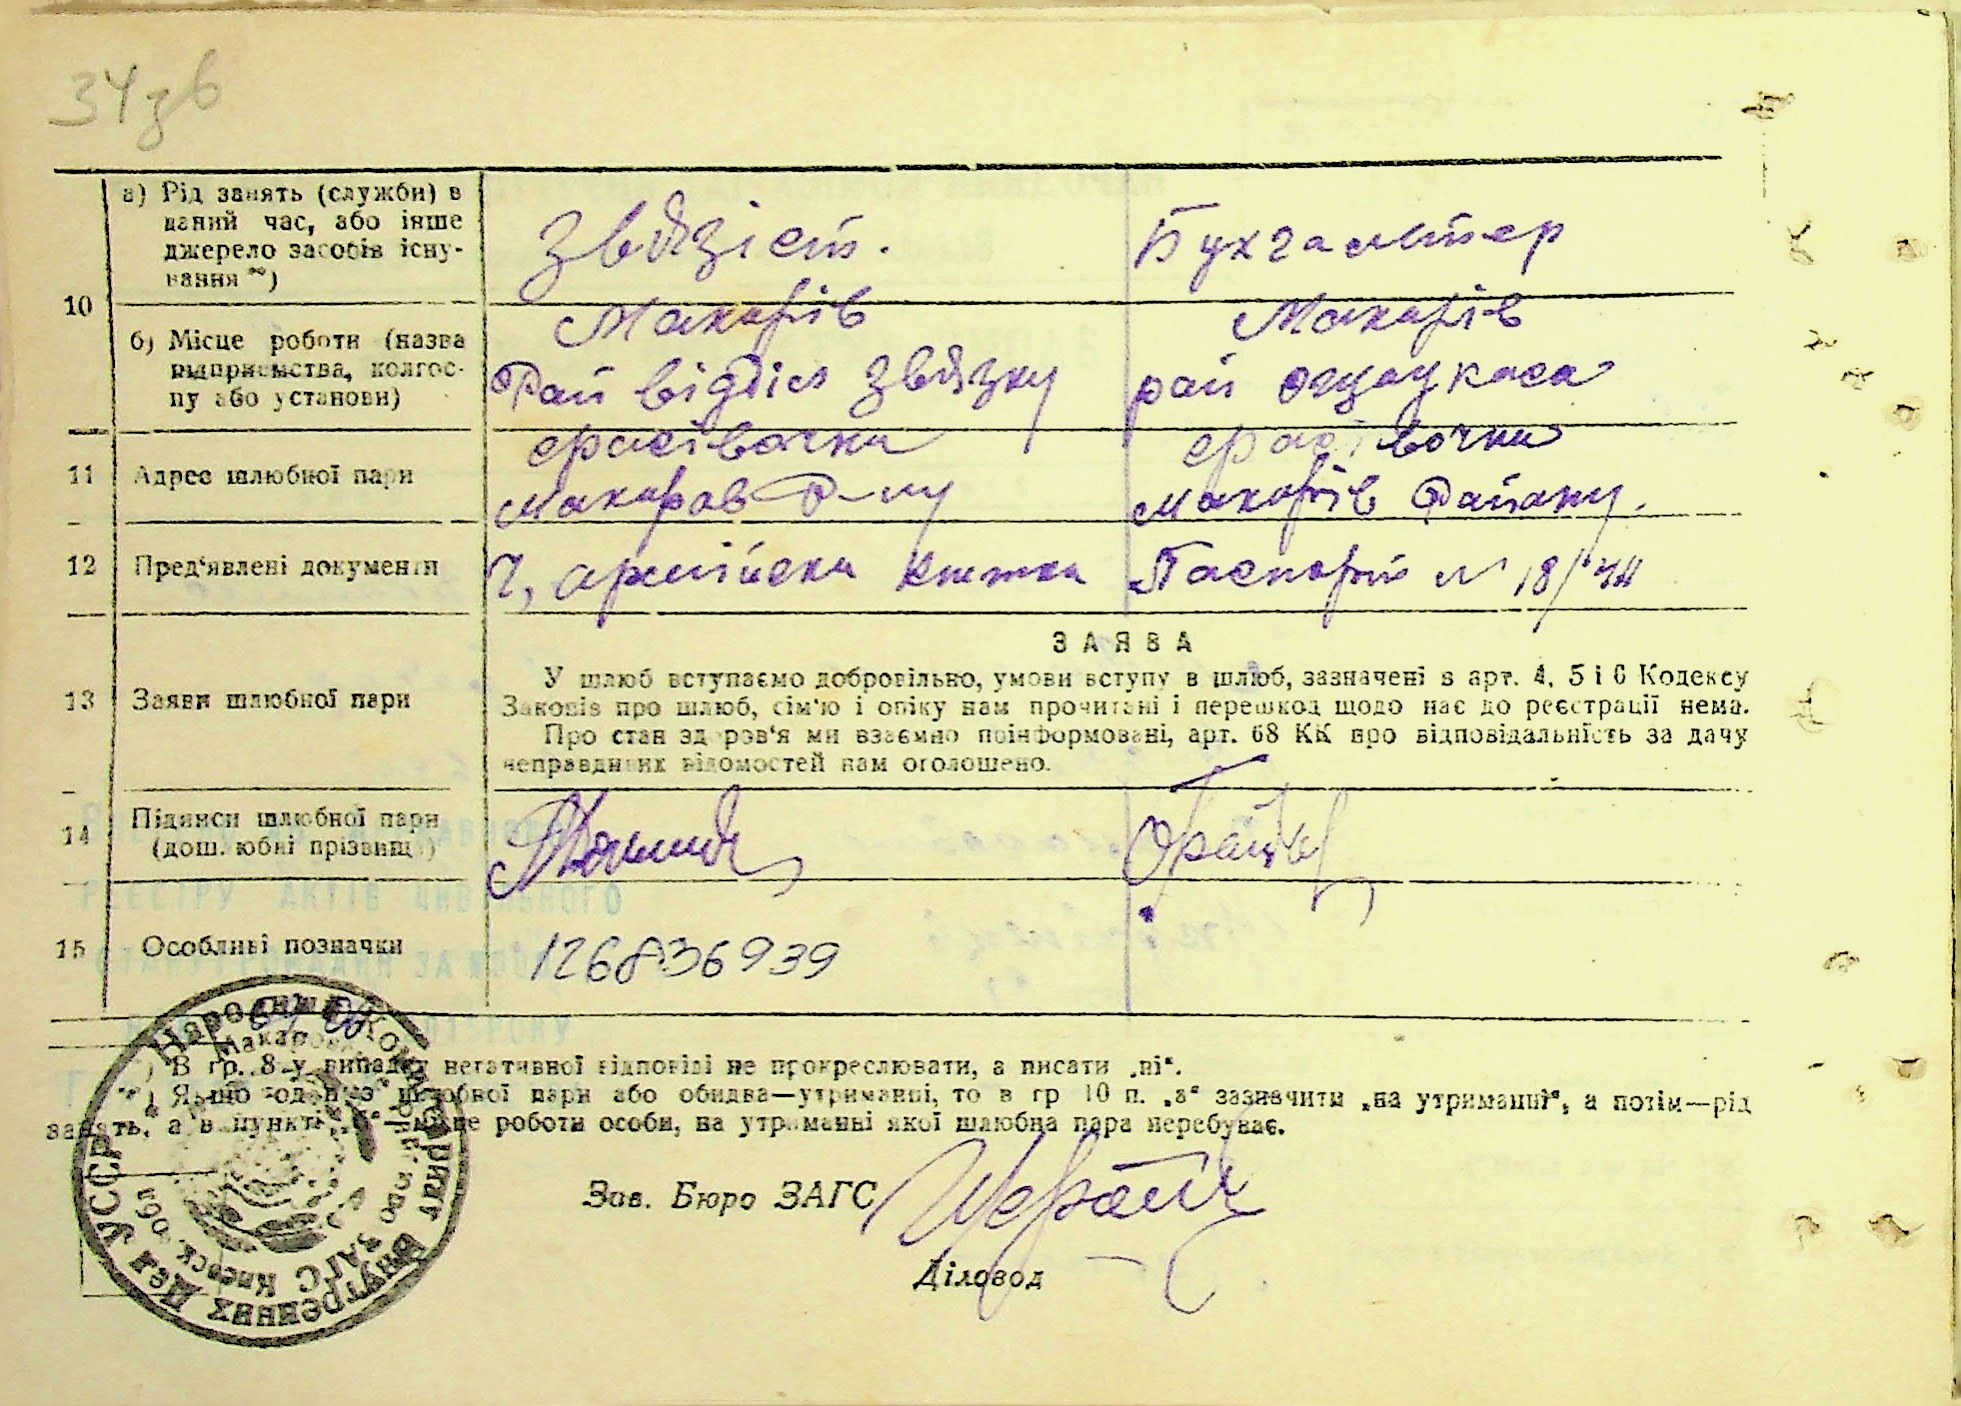 34зв
10
а) Рід занять (служби) в
даний час, або інше
джерело засобів існу-
вання **)
Звязіст.
Бухгалтер
б) Місце роботи (назва
підприємства, колгос-
пу або установи)
Макарів
Рай відділ Звязку
Макарів
рай ощадкаса
11
Адрес шлюбної пари
Фасівочка
Макарів Р-ну
Фасівочка
Макарів Району.
12
Пред'явлені документи
Ч, армійска книжка
Паспорт № 18/
13
Заяви шлюбної пари
ЗАЯВА
У шлюб вступаємо добровільно, умови вступу в шлюб, зазначені в арт. 4, 5 і 6 Кодексу
Законів про шлюб, сім'ю і опіку нам прочитані і перешкод щодо нас до реєстрації нема.
Про стан здоров'я ми взаємно поінформовані, арт. 68 КК про відповідальність за дачу
неправдивих відомостей нам оголошено.
14
Підписи шлюбної пари
(дошлюбні прізвища)
15
Особливі позначки
126836939
*) В гр. 8 у випадку негативної відповіді не прокреслювати, а писати „ні“.
**) Якщо один з шлюбної пари або обидва—утриманці, то в гр 10 п. „а“ зазначити „на утриманні“, а потім—рід
занять, а в пункті „б“ місце роботи особи, на утриманні якої шлюбна пара перебуває.
Зав. Бюро ЗАГС
Діловод
Народный Комиссариат Внутренних Дел УССР
ЗАГС Киевск. обл